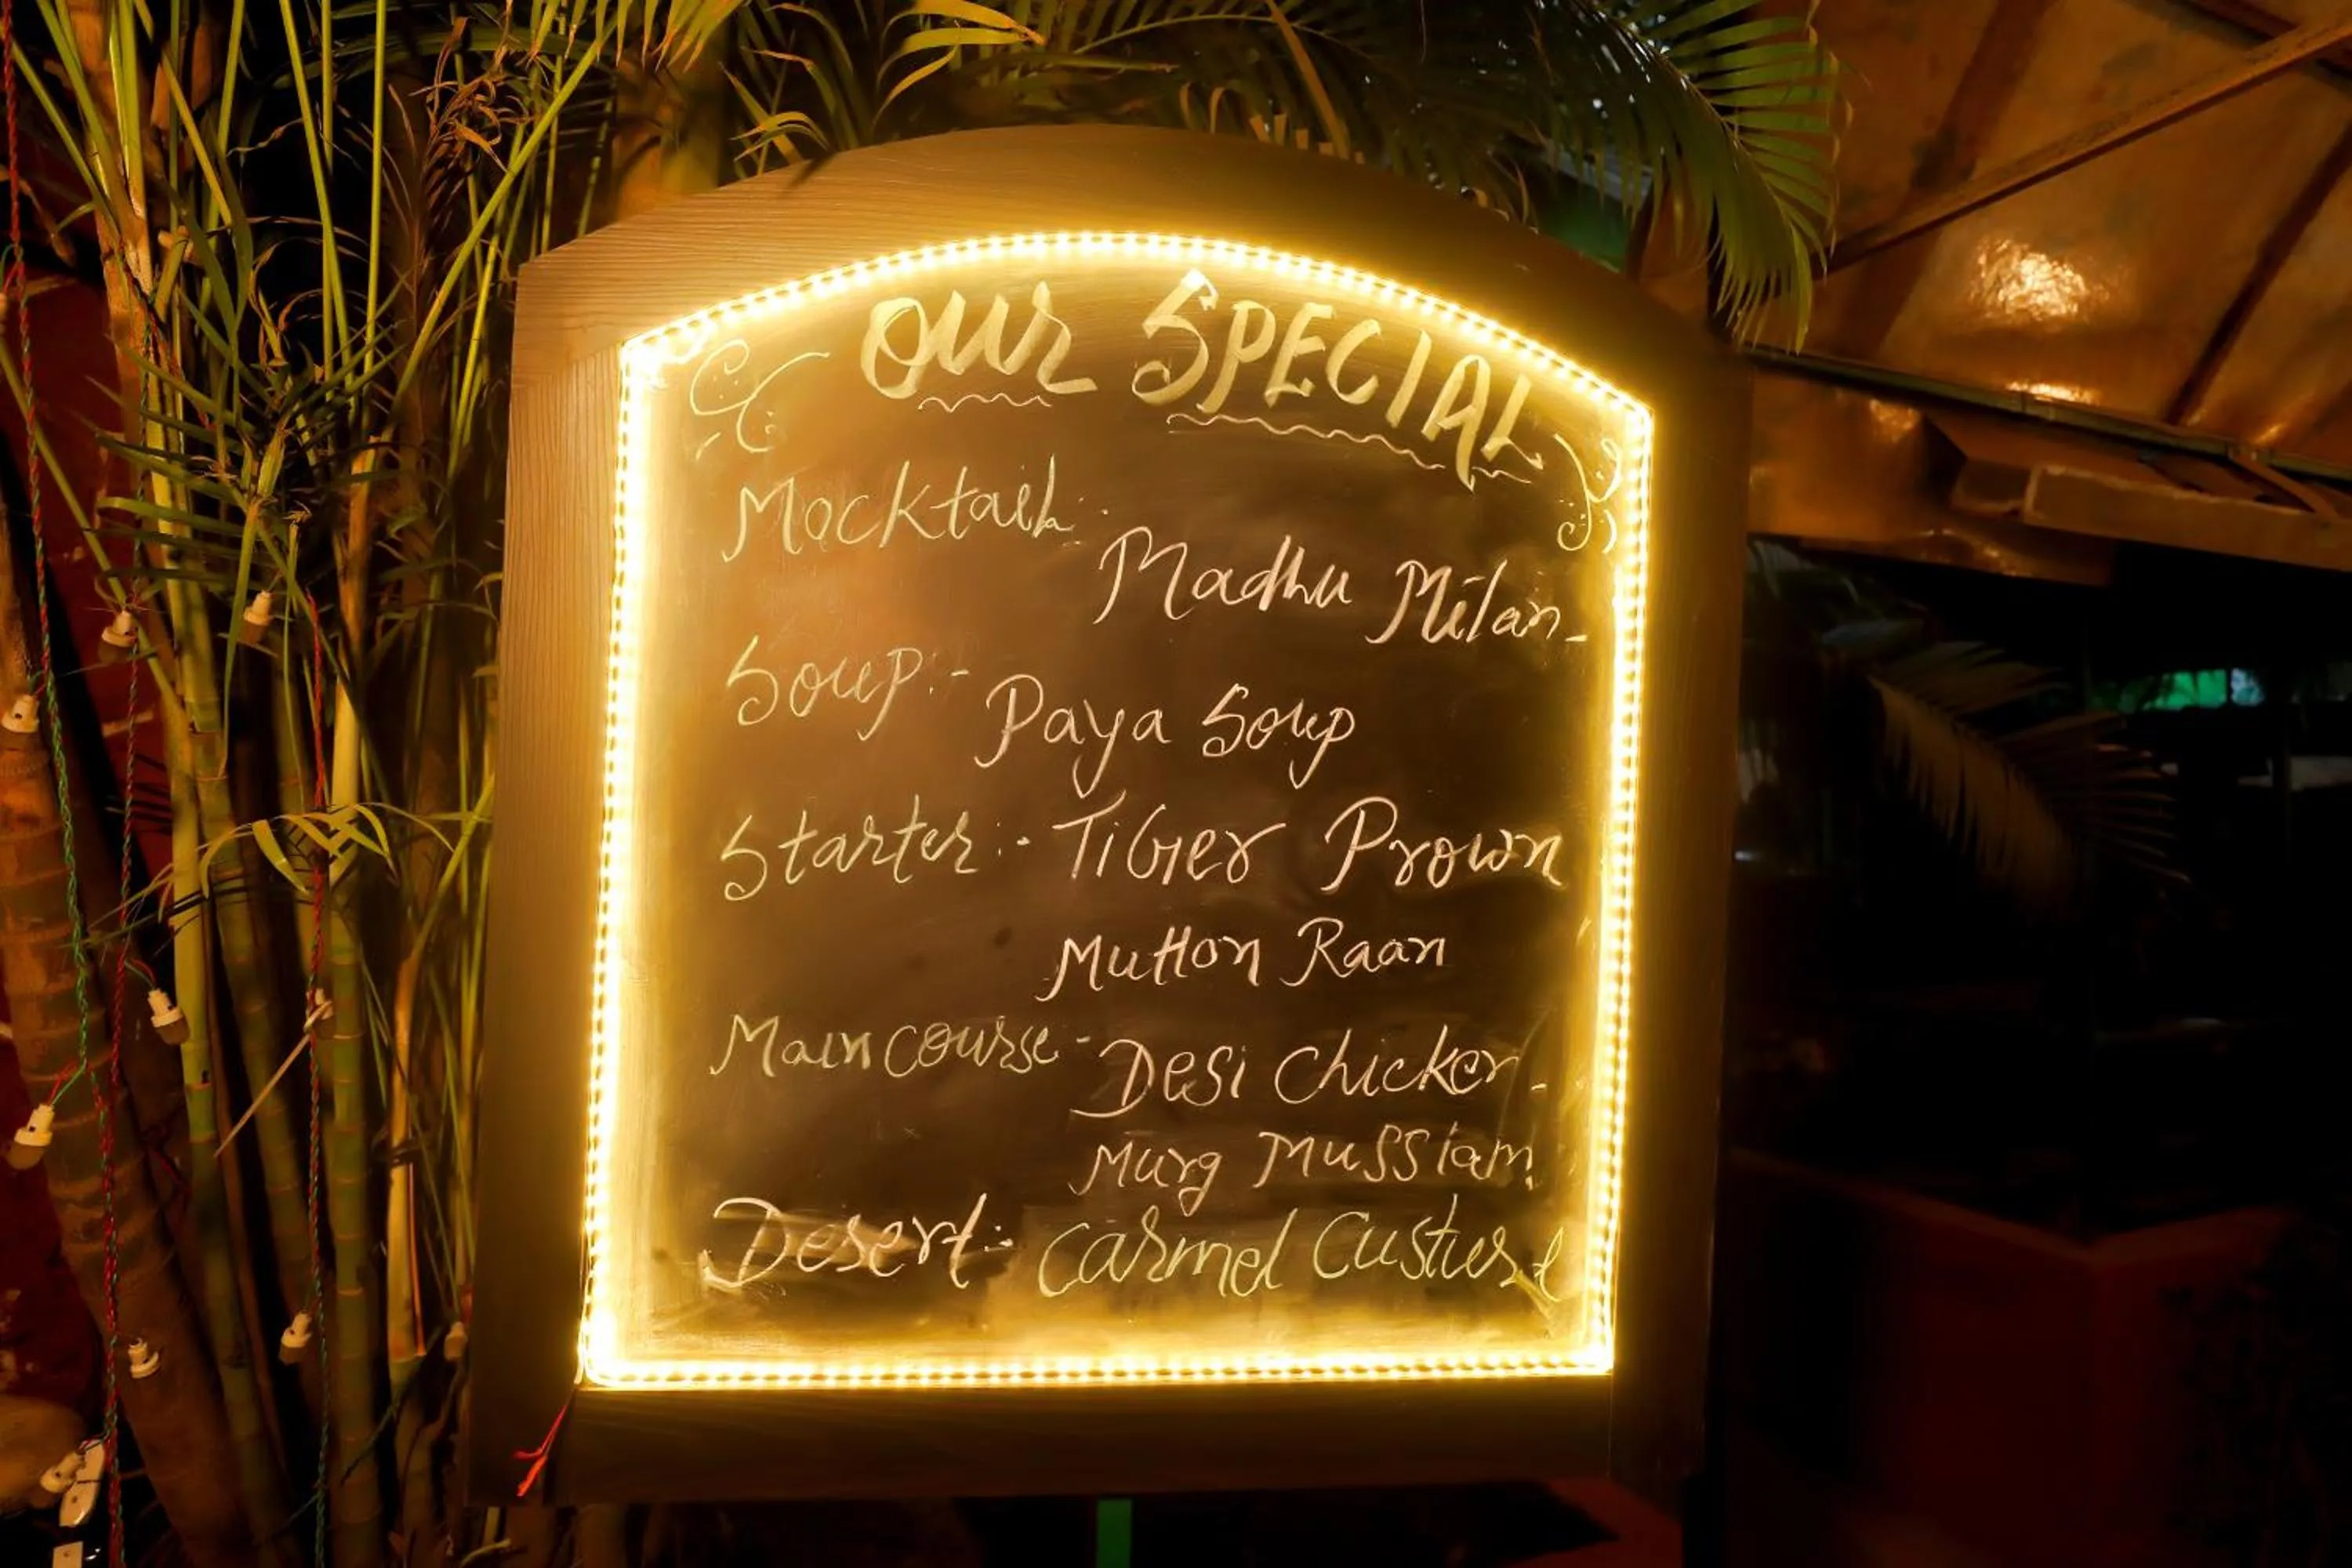 Our SPECIAL
Mocktail:
Madhu Milan-
Soup:- Paya Soup
Starter:- TiGer Prown
Mutton Raan
Main course- Desi Chicken-
Murg Mussiam
Desert:- Carmel Custurd